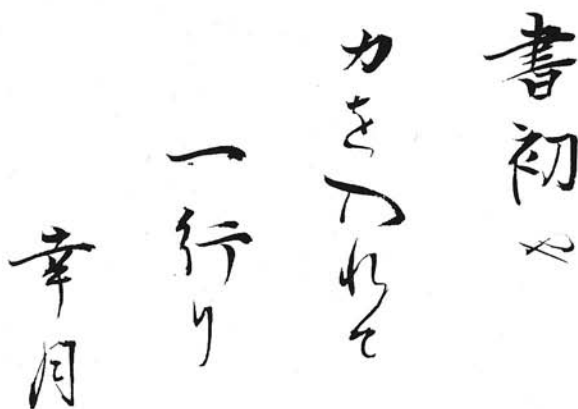 書初や
力を入れて
一行り
幸月